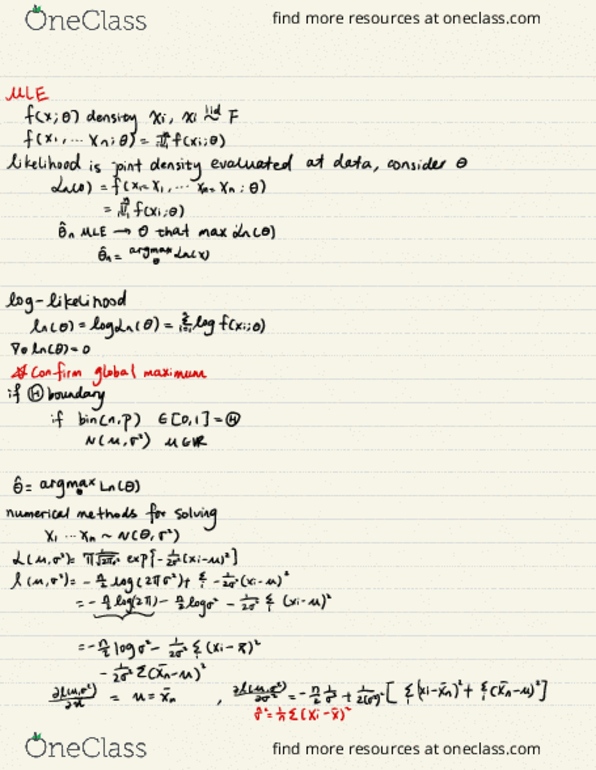 OneClass
find more resources at oneclass.com
MLE
f(x;θ) density Xi, Xi iid~ F
f(x1, ... Xn;θ) = π f(xi;θ)
likelihood is joint density evaluated at data, consider θ
Ln(θ) = f(x1=X1, ... Xn=Xn ; θ)
= π f(Xi;θ)
θ̂n MLE → θ that max Ln(θ)
θ̂n = argmax Ln(x)
log-likelihood
ln(θ) = log Ln(θ) = Σ log f(Xi;θ)
∇θ ln(θ) = 0
Confirm global maximum
if Θ boundary
if bin(n,p) ∈[0,1] = Θ
N(μ,σ²) μ∈ℝ
θ̂ = argmax Ln(θ)
numerical methods for solving
X1 ... Xn ~ N(θ,σ²)
L(μ,σ²) = π 1/√2πσ² exp{-1/2σ² (xi-μ)²]
l(μ,σ²) = -n/2 log(2πσ²) + Σ -1/2σ² (xi-μ)²
= -n/2 log(2π) - n/2 logσ² - 1/2σ² Σ (xi-μ)²
= -n/2 logσ² - 1/2σ² Σ (xi-x̄)²
- 1/2σ² Σ(X̄n-μ)²
= μ = X̄n , = -n/2 1/σ² + [ Σ(xi-X̄n)² + Σ(X̄n-μ)²]
σ̂² = 1/n Σ(Xi-X̄)²
OneClass
find more resources at oneclass.com